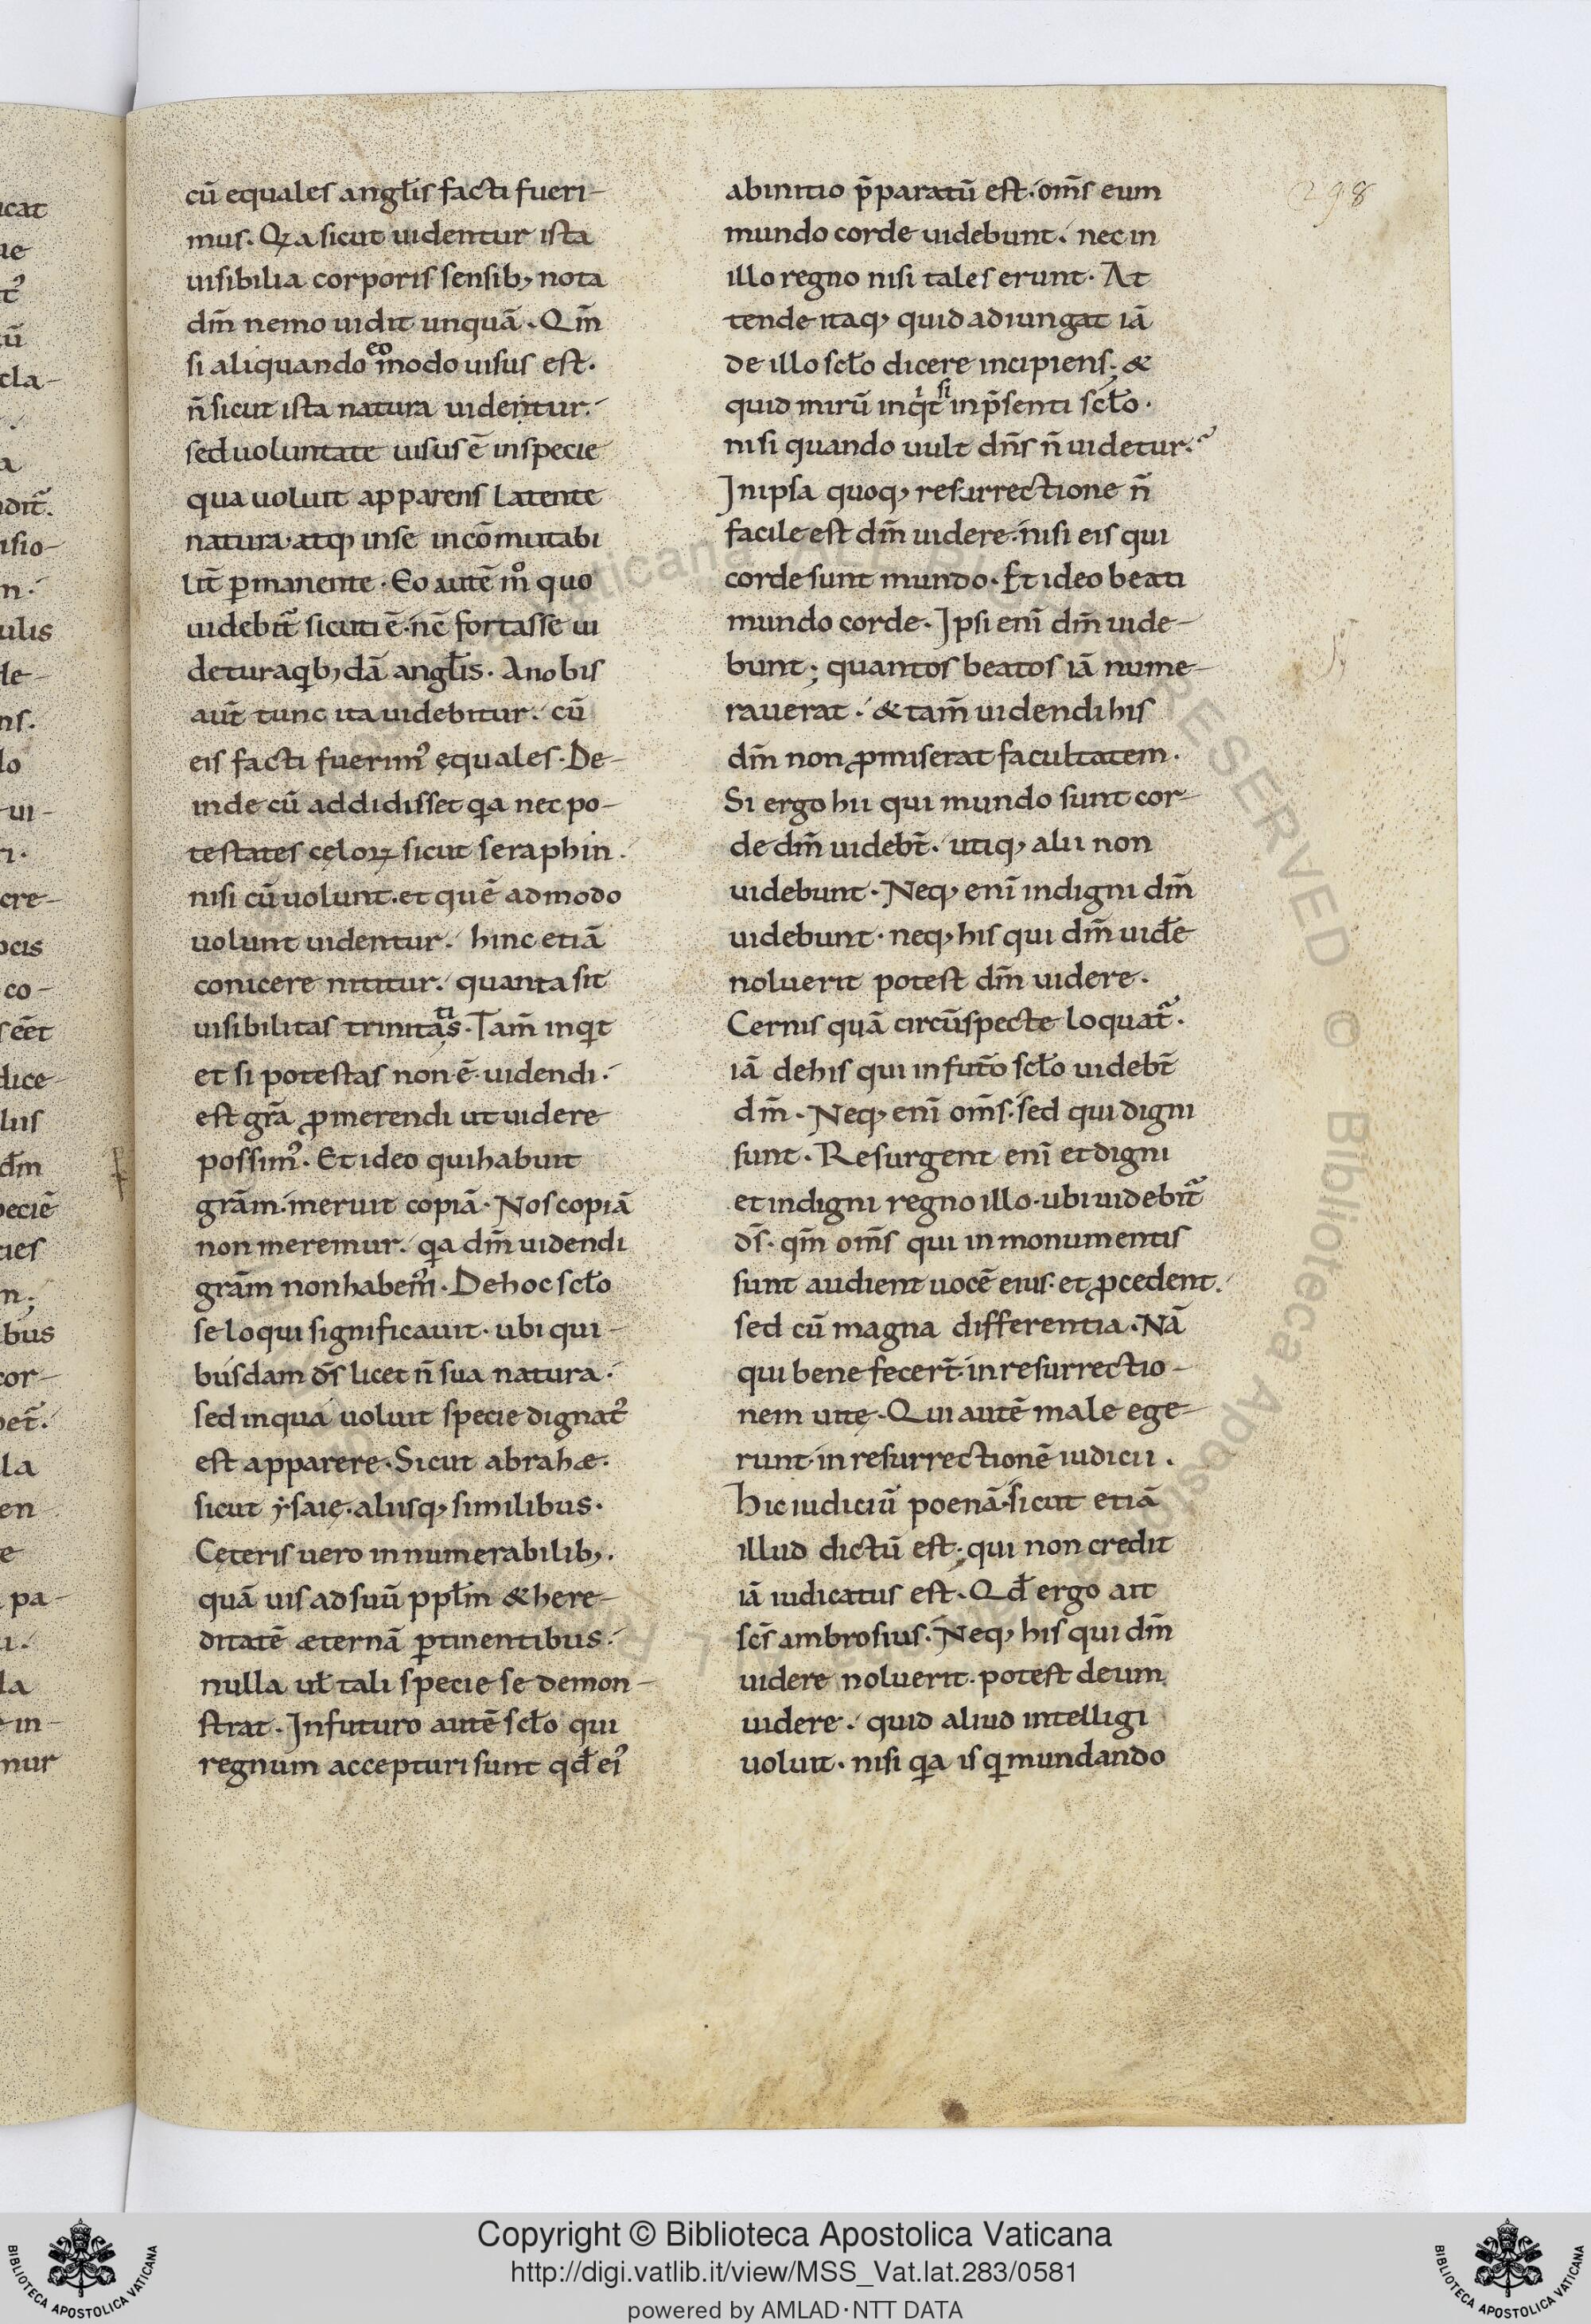 cū equales angłis facti fueri-
mus. Qꝛa sicut uidentur ista
uisibilia corporis sensib; nota
dm̄ nemo uidit unquā. Qm̄
si aliquando eo modo uisus est.
n̄ sicut ista natura uidentur.
sed uoluntate uisus ē in specie
qua uoluit apparens latente
natura. atq; inse incōmutabi
lit̄ ꝑmanente. Eo autē m̊ quo
uidebit᷑ sicuti ē. nc̄ fortasse ui
detur aqib; dā angłis. Anobis
aut̄ tunc ita uidebitur. cū
eis facti fuerim᷒ ęquales. De-
inde cū addidisset qa nec po-
testates cęloꝝ sicut seraphin.
nisi cū uolunt. et quē admodo
uolunt uidentur. hinc etiā
conicere nititur. quanta sit
uisibilitas trinitatis. Tam̄ inqit
et si potestas non ē uidendi.
est grā ꝓmerendi ut uidere
possim᷒. Et ideo qui habuit
grām. meruit copiā. Nos copiā
non meremur. qa dm̄ uidendi
grām non habem᷒. De hoc scło
se loqui significauit. ubi qui-
busdam ds̄ licet n̄ sua natura.
sed in qua uoluit specie dignat᷒
est apparere. Sicut abrahæ.
sicut ysaie. aliisq; similibus.
Cęteris uero innumerabilib;.
quā uis ad suū ppłm & here-
ditatē æternā ꝑtinentibus.
nulla uł tali specie se demon-
strat. In futuro autē scło qui
regnum accepturi sunt qđ ei᷒
abinitio p̄paratū est. om̄s eum
mundo corde uidebunt. nec in
illo regno nisi tales erunt. At
tende itaq; quid adiungat iā
de illo scło dicere incipiens; &
quid mirū inqt si in p̄senti scło.
nisi quando uult dn̄s n̄ uidetur.
In ipsa quoq; resurrectione n̄
facile est dm̄ uidere. nisi eis qui
corde sunt mundo. Et ideo beati
mundo corde. Ipsi enī dm̄ uide-
bunt; quantos beatos iā nume-
rauerat. & tam̄ uidendi his
dm̄ non ꝓmiserat facultatem.
Si ergo hii qui mundo sunt cor-
de dm̄ uidebt̄. utiq; alii non
uidebunt. Neq; enī indigni dm̄
uidebunt. neq; his qui dm̄ uiđe
noluerit potest dm̄ uidere.
Cernis quā circūspecte loquat᷑.
iā de his qui in fut̄o scło uidebt̄
dm̄. Neq; enī om̄s. sed qui digni
sunt. Resurgent enī et digni
et indigni regno illo. ubi uidebit᷑
ds̄. qm̄ om̄s qui in monumentis
sunt audient uocē eius. et ꝓcedent.
sed cū magna differentia. Nā
qui bene fecert̄. in resurrectio-
nem uitę. Qui autē male ege-
runt. in resurrectionē iudicii.
Hic iudiciū poenā. sicut etiā
illud dictū est. qui non credit
iā iudicatus est. Qđ ergo ait
scs̄ ambrosius. Neq; his qui dm̄
uidere noluerit. potest deum
uidere. quid aliud intelligi
uoluit. nisi qa is qi mundando
298
Copyright © Biblioteca Apostolica Vaticana
http://digi.vatlib.it/view/MSS_Vat.lat.283/0581
powered by AMLAD·NTT DATA
BIBLIOTECA APOSTOLICA VATICANA
BIBLIOTECA APOSTOLICA VATICANA